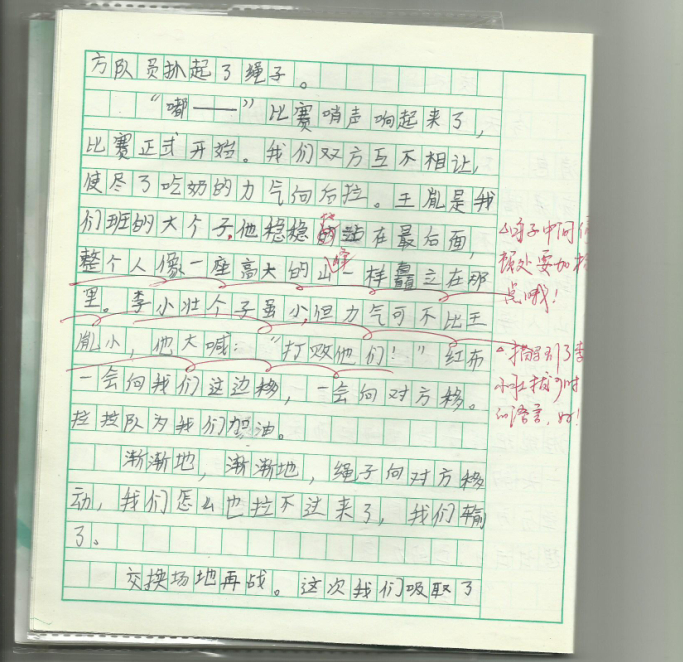 方队员扒起了绳子。
“嘟——”比赛哨声响起来了，
比赛正式开始。我们双方互不相让，
使尽了吃奶的力气向后拉。王胤是我
们班的大个子，他稳稳地站在最后面，
整个人像一座高大的山峰一样矗立在那
里。李小壮个子虽小，但力气可不比王
胤小，他大喊：“打败他们！”红布
一会向我们这边移，一会向对方移。
拉拉队为我们加油。
渐渐地，渐渐地，绳子向对方移
动，我们怎么也拉不过来了，我们输
了。
交换场地再战。这次我们吸取了
句子中间停
顿处要加标
点哦！
描写到了李
小壮拔河时
的语言，好！